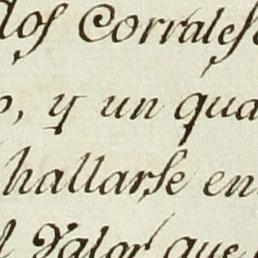 dos Corrales
o, y un qua
hallarse en
l Valor que